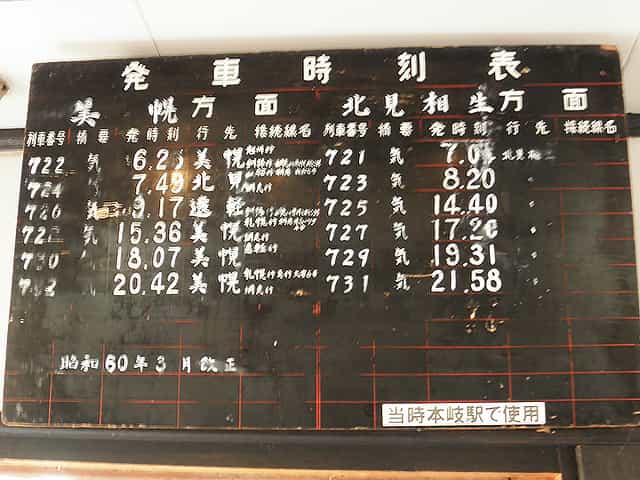 発車時刻表
美幌方面 北見相生方面
列車番号 摘要 発時刻 行先 接続線名 列車番号 摘要 発時刻 行先 接続線名
722 気 6.23 美幌 721 気 7.0 北見相生
724 7.49 北見 網走行 723 気 8.20 〃
726 気 9.17 遠軽 725 気 14.40 〃
728 気 15.36 美幌 網走行 727 気 17.26 〃
730 18.07 美幌 遠軽行 729 気 19.31 〃
732 20.42 美幌 網走行 731 気 21.58 〃
昭和60年3月改正
当時本岐駅で使用